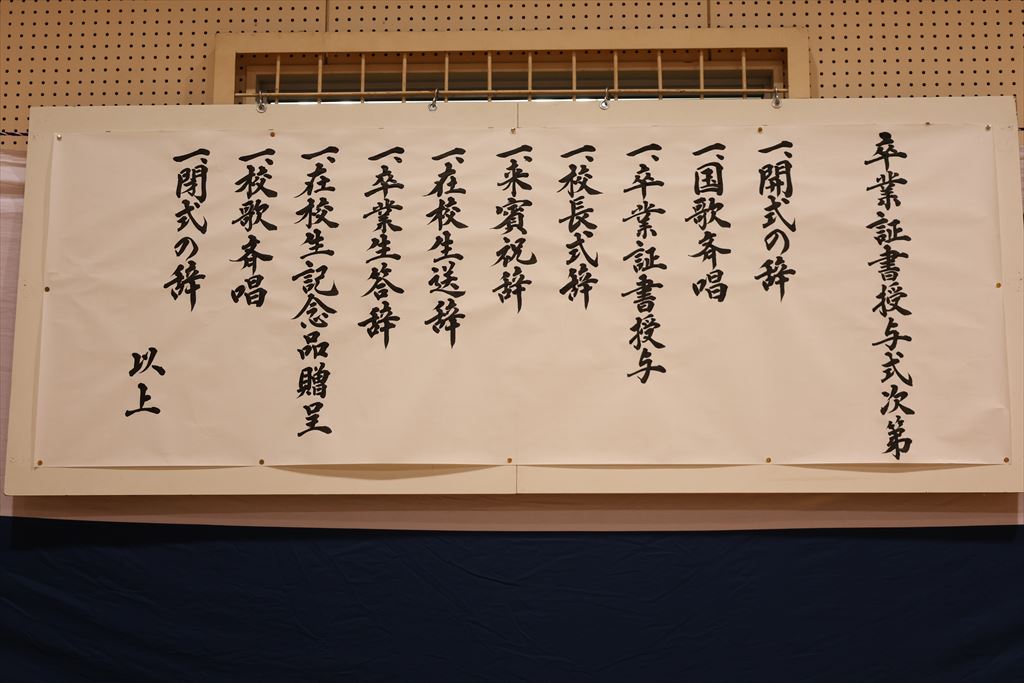 卒業証書授与式次第
一、開式の辞
一、国歌斉唱
一、卒業証書授与
一、校長式辞
一、来賓祝辞
一、在校生送辞
一、卒業生答辞
一、在校生記念品贈呈
一、校歌斉唱
一、閉式の辞
以上